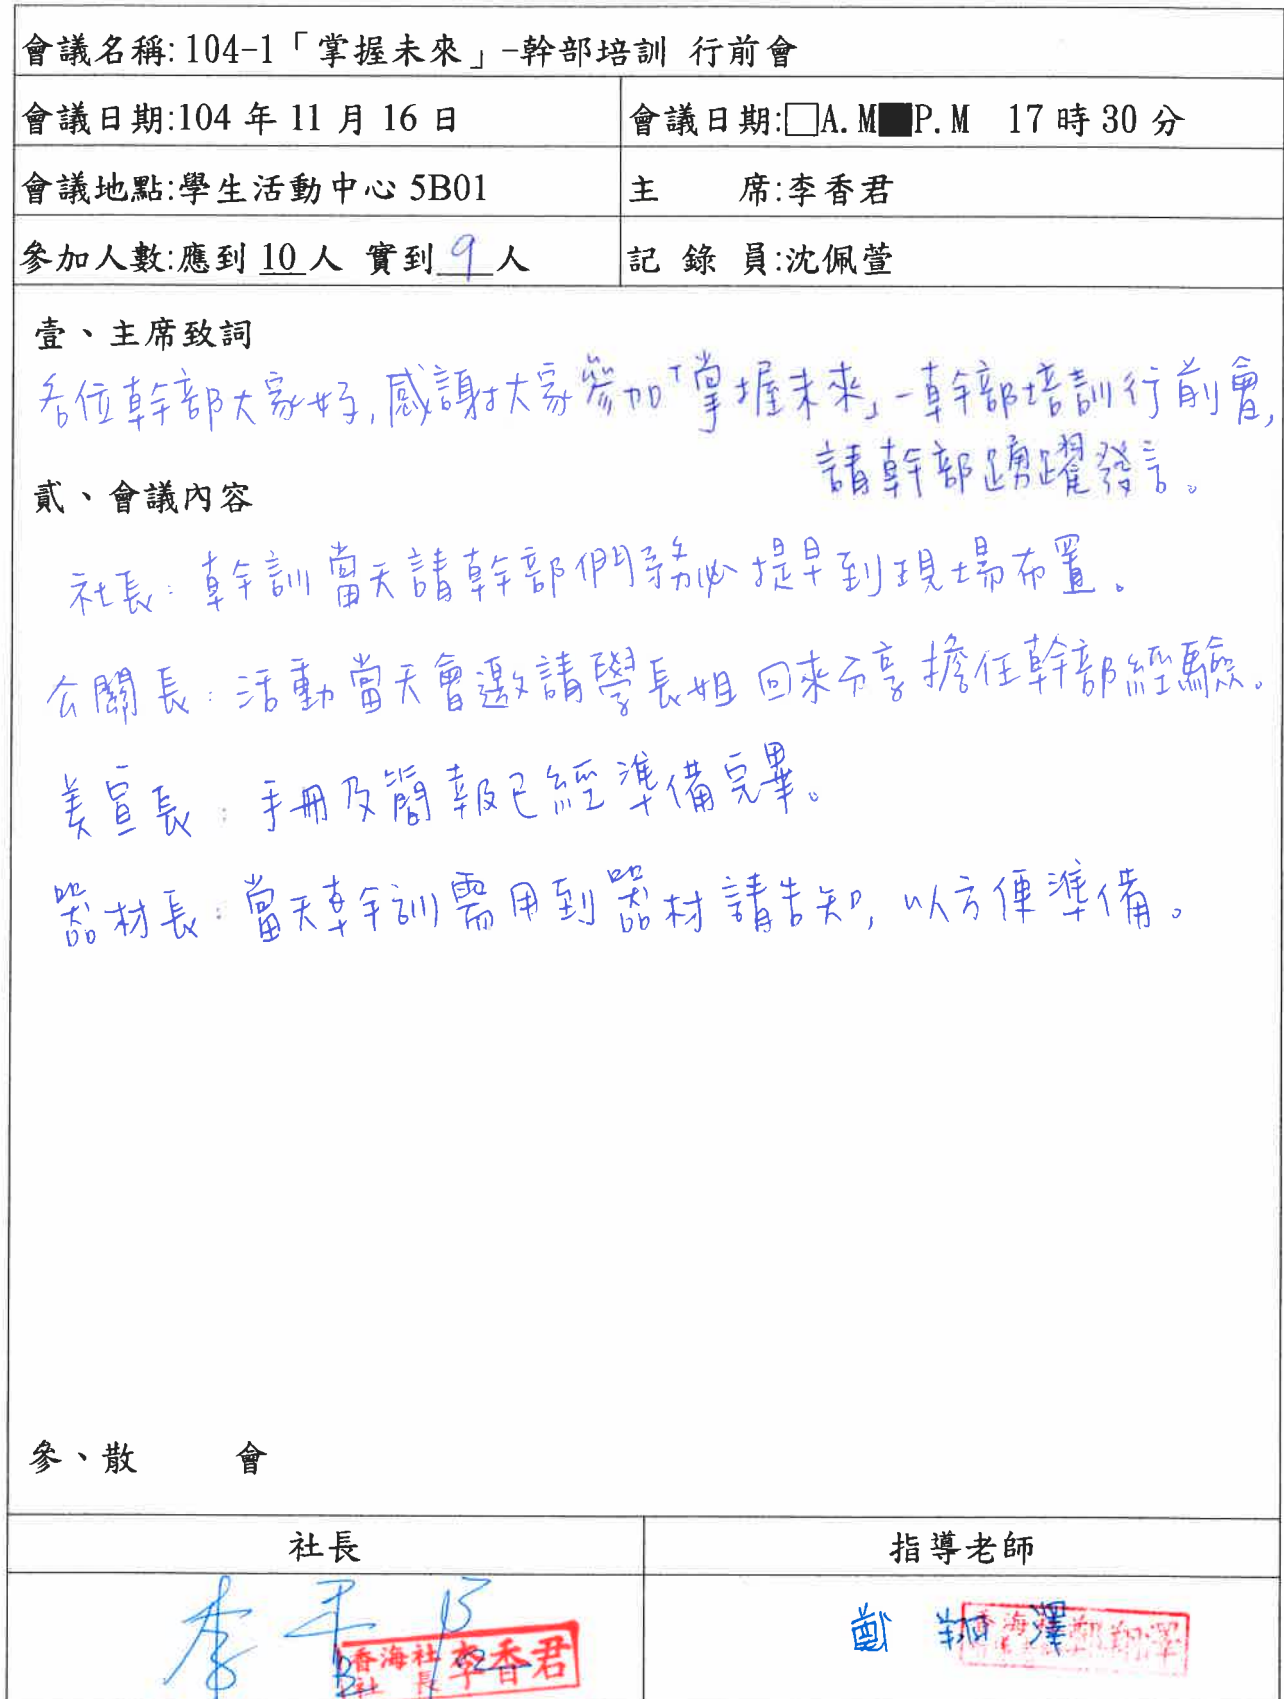 會議名稱:104-1「掌握未來」-幹部培訓 行前會
會議日期:104 年 11 月 16 日
會議日期:□A.M■P.M 17 時 30 分
會議地點:學生活動中心 5B01
主 席:李香君
參加人數:應到 10 人 實到 9 人
記 錄 員:沈佩萱
壹、主席致詞
各位幹部大家好,感謝大家參加「掌握未來」-幹部培訓行前會,
請幹部踴躍發言。
貳、會議內容
社長:幹訓當天請幹部們務必提早到現場布置。
公關長:活動當天會邀請學長姐回來分享擔任幹部經驗。
美宣長:手冊及簡報已經準備完畢。
器材長:當天幹訓需用到器材請告知,以方便準備。
參、散 會
社長
指導老師
李香君
香海社社長 李香君
鄭翔澤
鄭翔澤